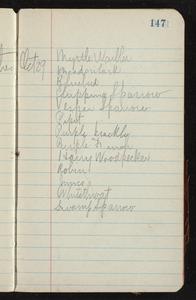 147
Oct 09
Myrtle Warbler
Meadowlark
Bluebird
Chipping Sparrow
Vesper Sparrow
Pipit
Purple Grackle
Purple Finch
Hairy Woodpecker
Robin
Junco
Whitethroat
Swamp Sparrow